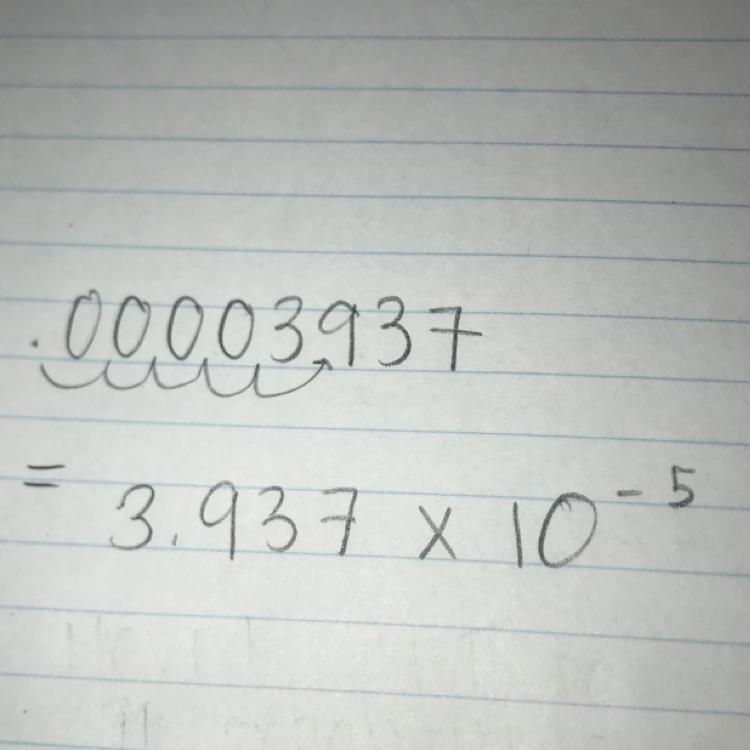 .00003937
= 3.937 x 10^-5